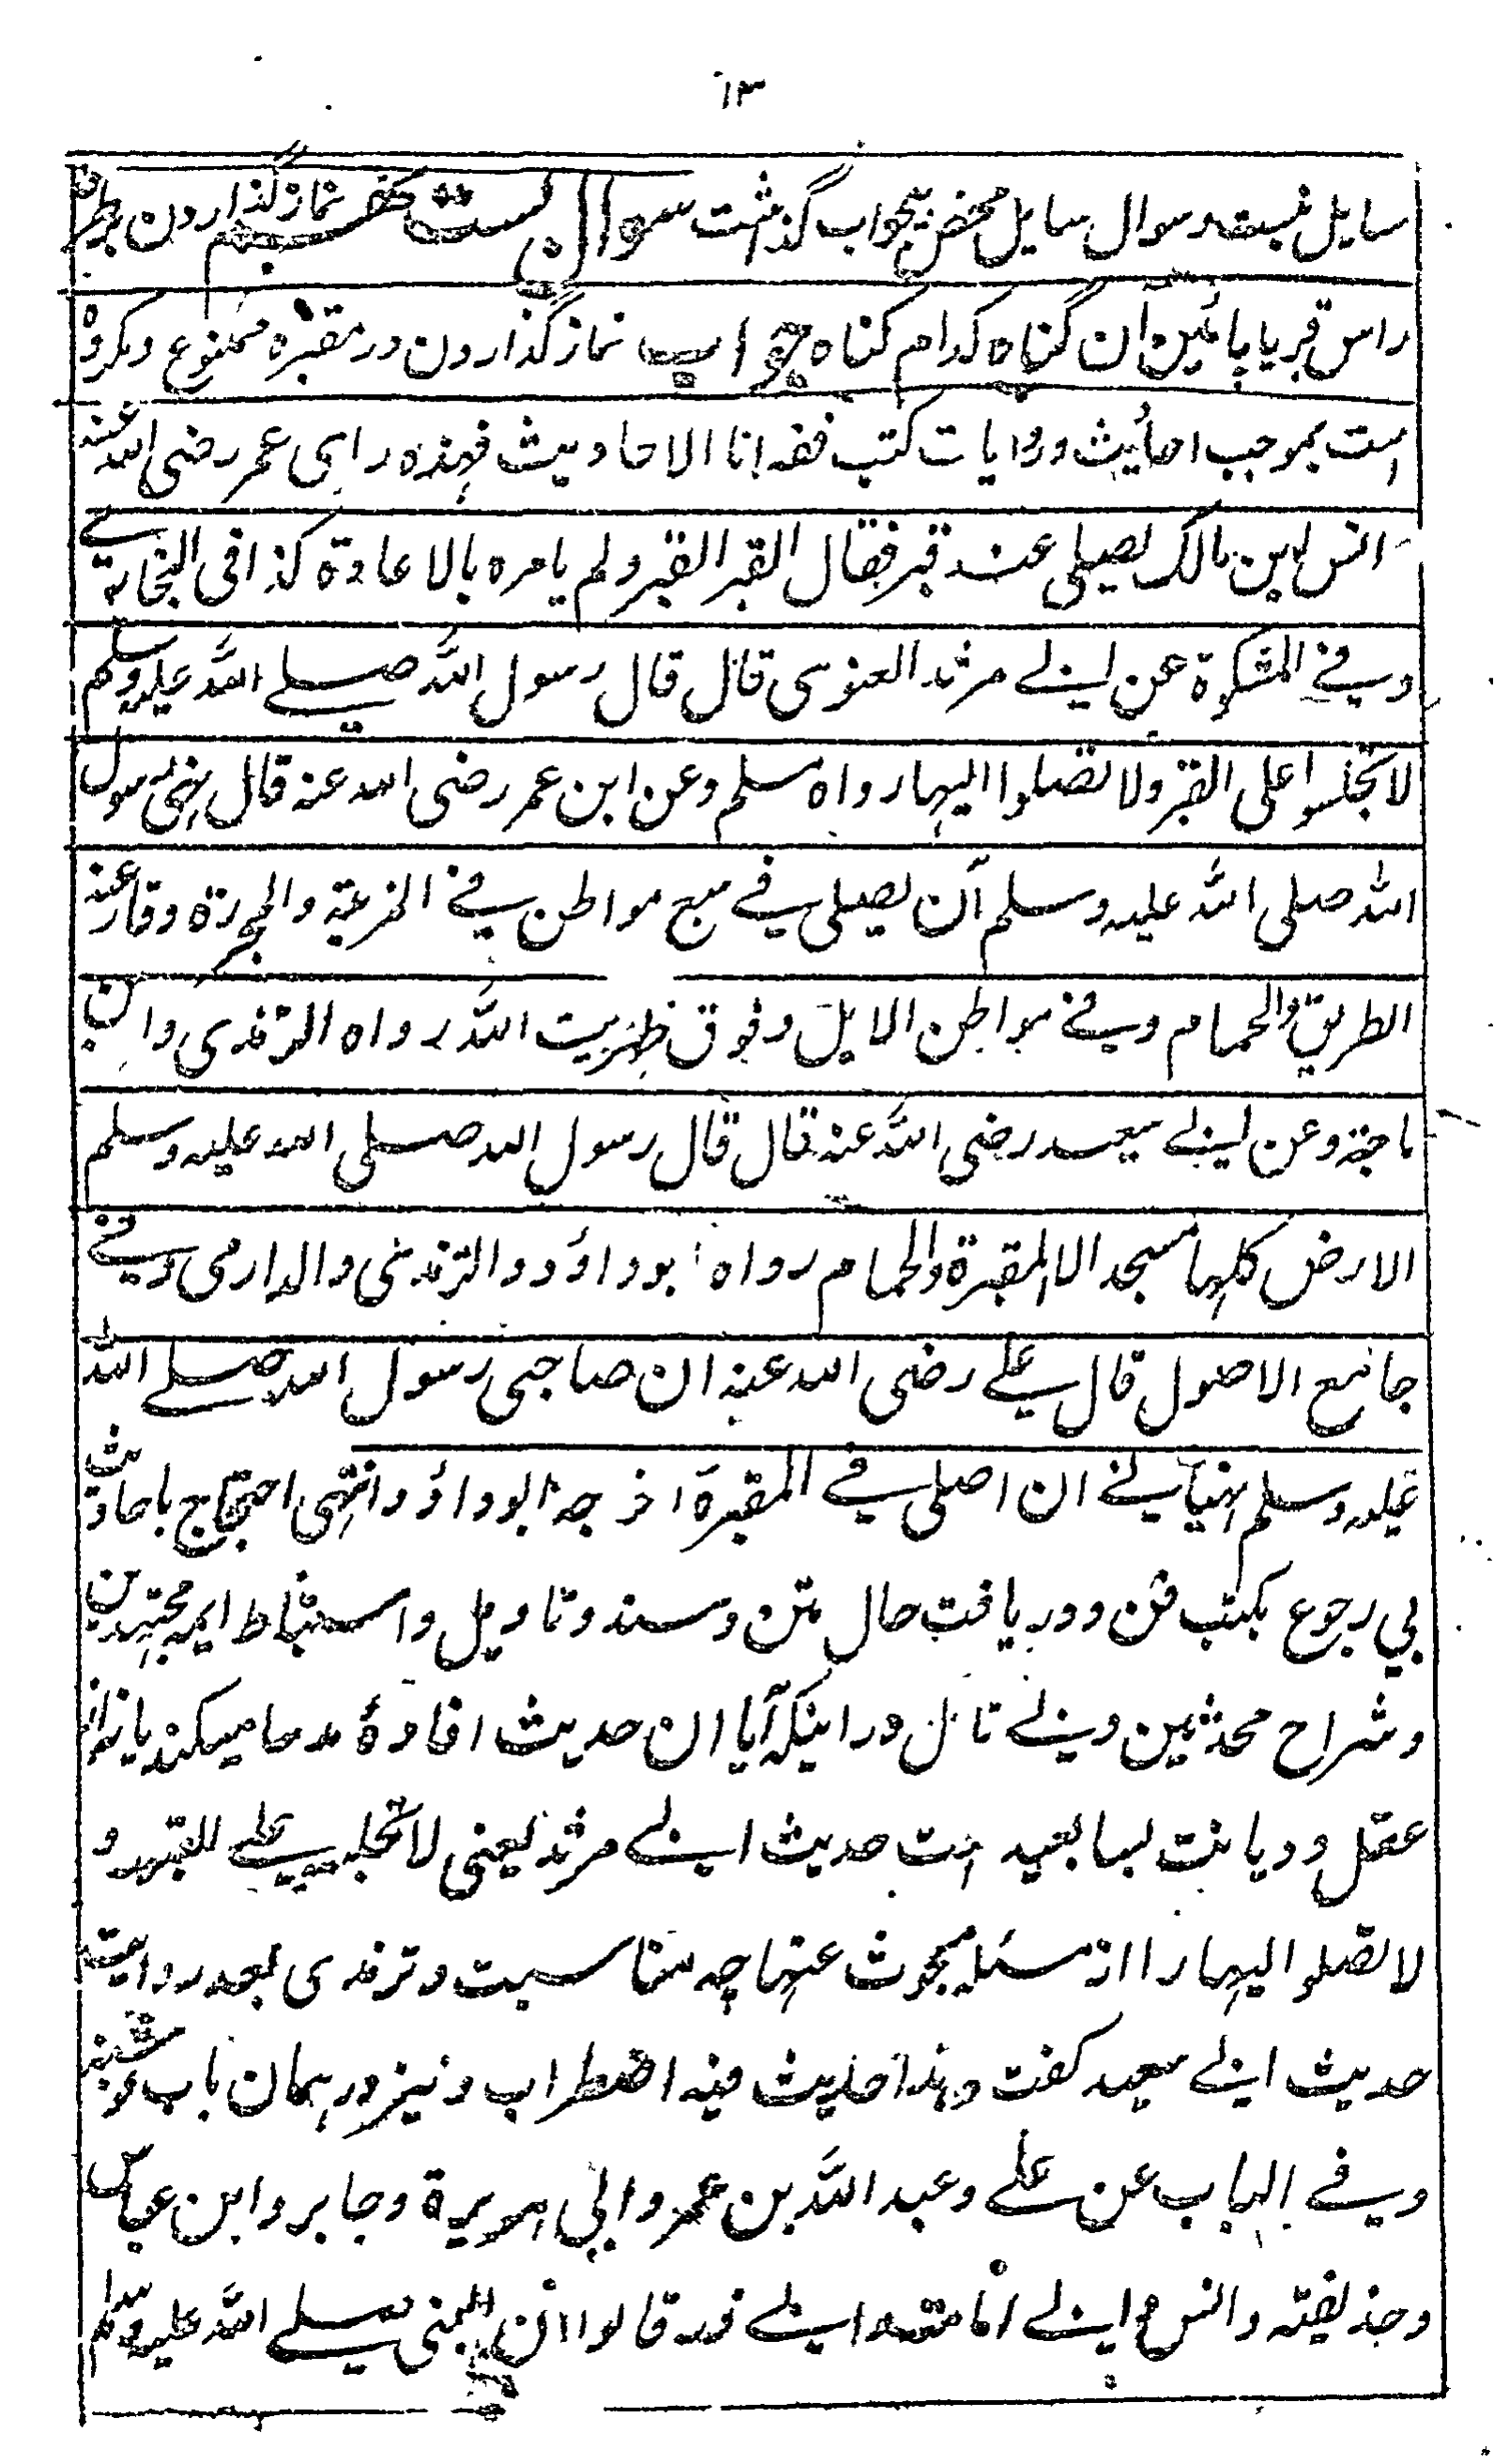 ۱۳
سایل نیست و سوال سایل محض بیجواب گذاشت سوال بست نماز گذاردن بطرف
راس قبر یا پائین آن گناه کدام گناه جواب نماز گذاردن در مقبره ممنوع و مکروه
است بموجب احادیث و روایات کتب فقه اما الاحادیث فهذه رای عمر رضی الله عنه
انس ابن مالک یصلی عند قبر فقال القبر القبر و لم یامره بالاعادة کذا فی البخاری
و فی المشکوة عن ابی مرثد الغنوی قال قال رسول الله صلی الله علیه وسلم
لا تجلسوا علی القبر ولا تصلوا الیها رواه مسلم وعن ابن عمر رضی الله عنه قال نهی رسول
الله صلی الله علیه وسلم ان یصلی فی سبع مواطن فی المزبلة والمجزرة وقارعة
الطریق والحمام و فی مواطن الابل وفوق ظهر بیت الله رواه الترمذی وابن
ماجة وعن ابی سعید رضی الله عنه قال قال رسول الله صلی الله علیه وسلم
الارض کلها مسجد الا المقبرة والحمام رواه ابوداؤد والترمذی والدارمی و فی
جامع الاصول قال علی رضی الله عنه ان صاحبی رسول الله صلی الله
علیه وسلم نهیانی ان اصلی فی المقبرة اخرجه ابوداؤد انتهی احتجاج باحادیث
بی رجوع بکتب فن و دریافت حال متن و سند و تاویل و استنباط ایمه مجتهدین
و شراح محدثین و بی تامل در اینکه آیا ان حدیث افادهٔ مدعا میکند یا نه از
عقل و دیانت بسا بعید است حدیث ابی مرثد یعنی لا تجلسوا علی القبور و
لا تصلوا الیها را از مسئله مبحوث عنها چه مناسبت و ترمذی بعد روایت
حدیث ابی سعید گفت وهذا حدیث فیه اضطراب و نیز در همان باب
و فی الباب عن علی وعبد الله بن عمرو وابی هریرة وجابر وابن عباس
وحذیفة وانس وابی امامة وابی ذر قالوا ان النبی صلی الله علیه وسلم